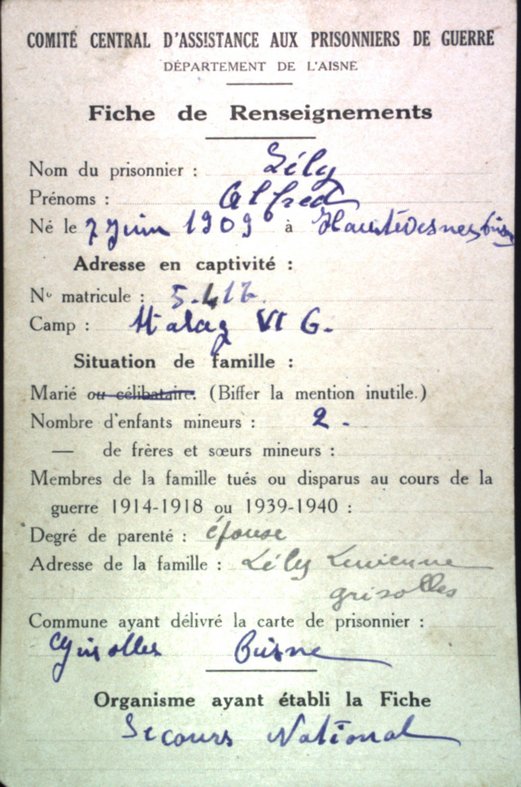 COMITÉ CENTRAL D'ASSISTANCE AUX PRISONNIERS DE GUERRE
DÉPARTEMENT DE L'AISNE
Fiche de Renseignements
Nom du prisonnier : Lély
Prénoms : Alfred
Né le 7 Juin 1909 à
Adresse en captivité :
No matricule :
Camp : Stalag VI G.
Situation de famille :
Marié ou célibataire. (Biffer la mention inutile.)
Nombre d'enfants mineurs : 2.
— de frères et sœurs mineurs :
Membres de la famille tués ou disparus au cours de la
guerre 1914-1918 ou 1939-1940 :
Degré de parenté : épouse
Adresse de la famille : Lély
grisolles
Commune ayant délivré la carte de prisonnier :
Grisolles Aisne
Organisme ayant établi la Fiche
Secours National